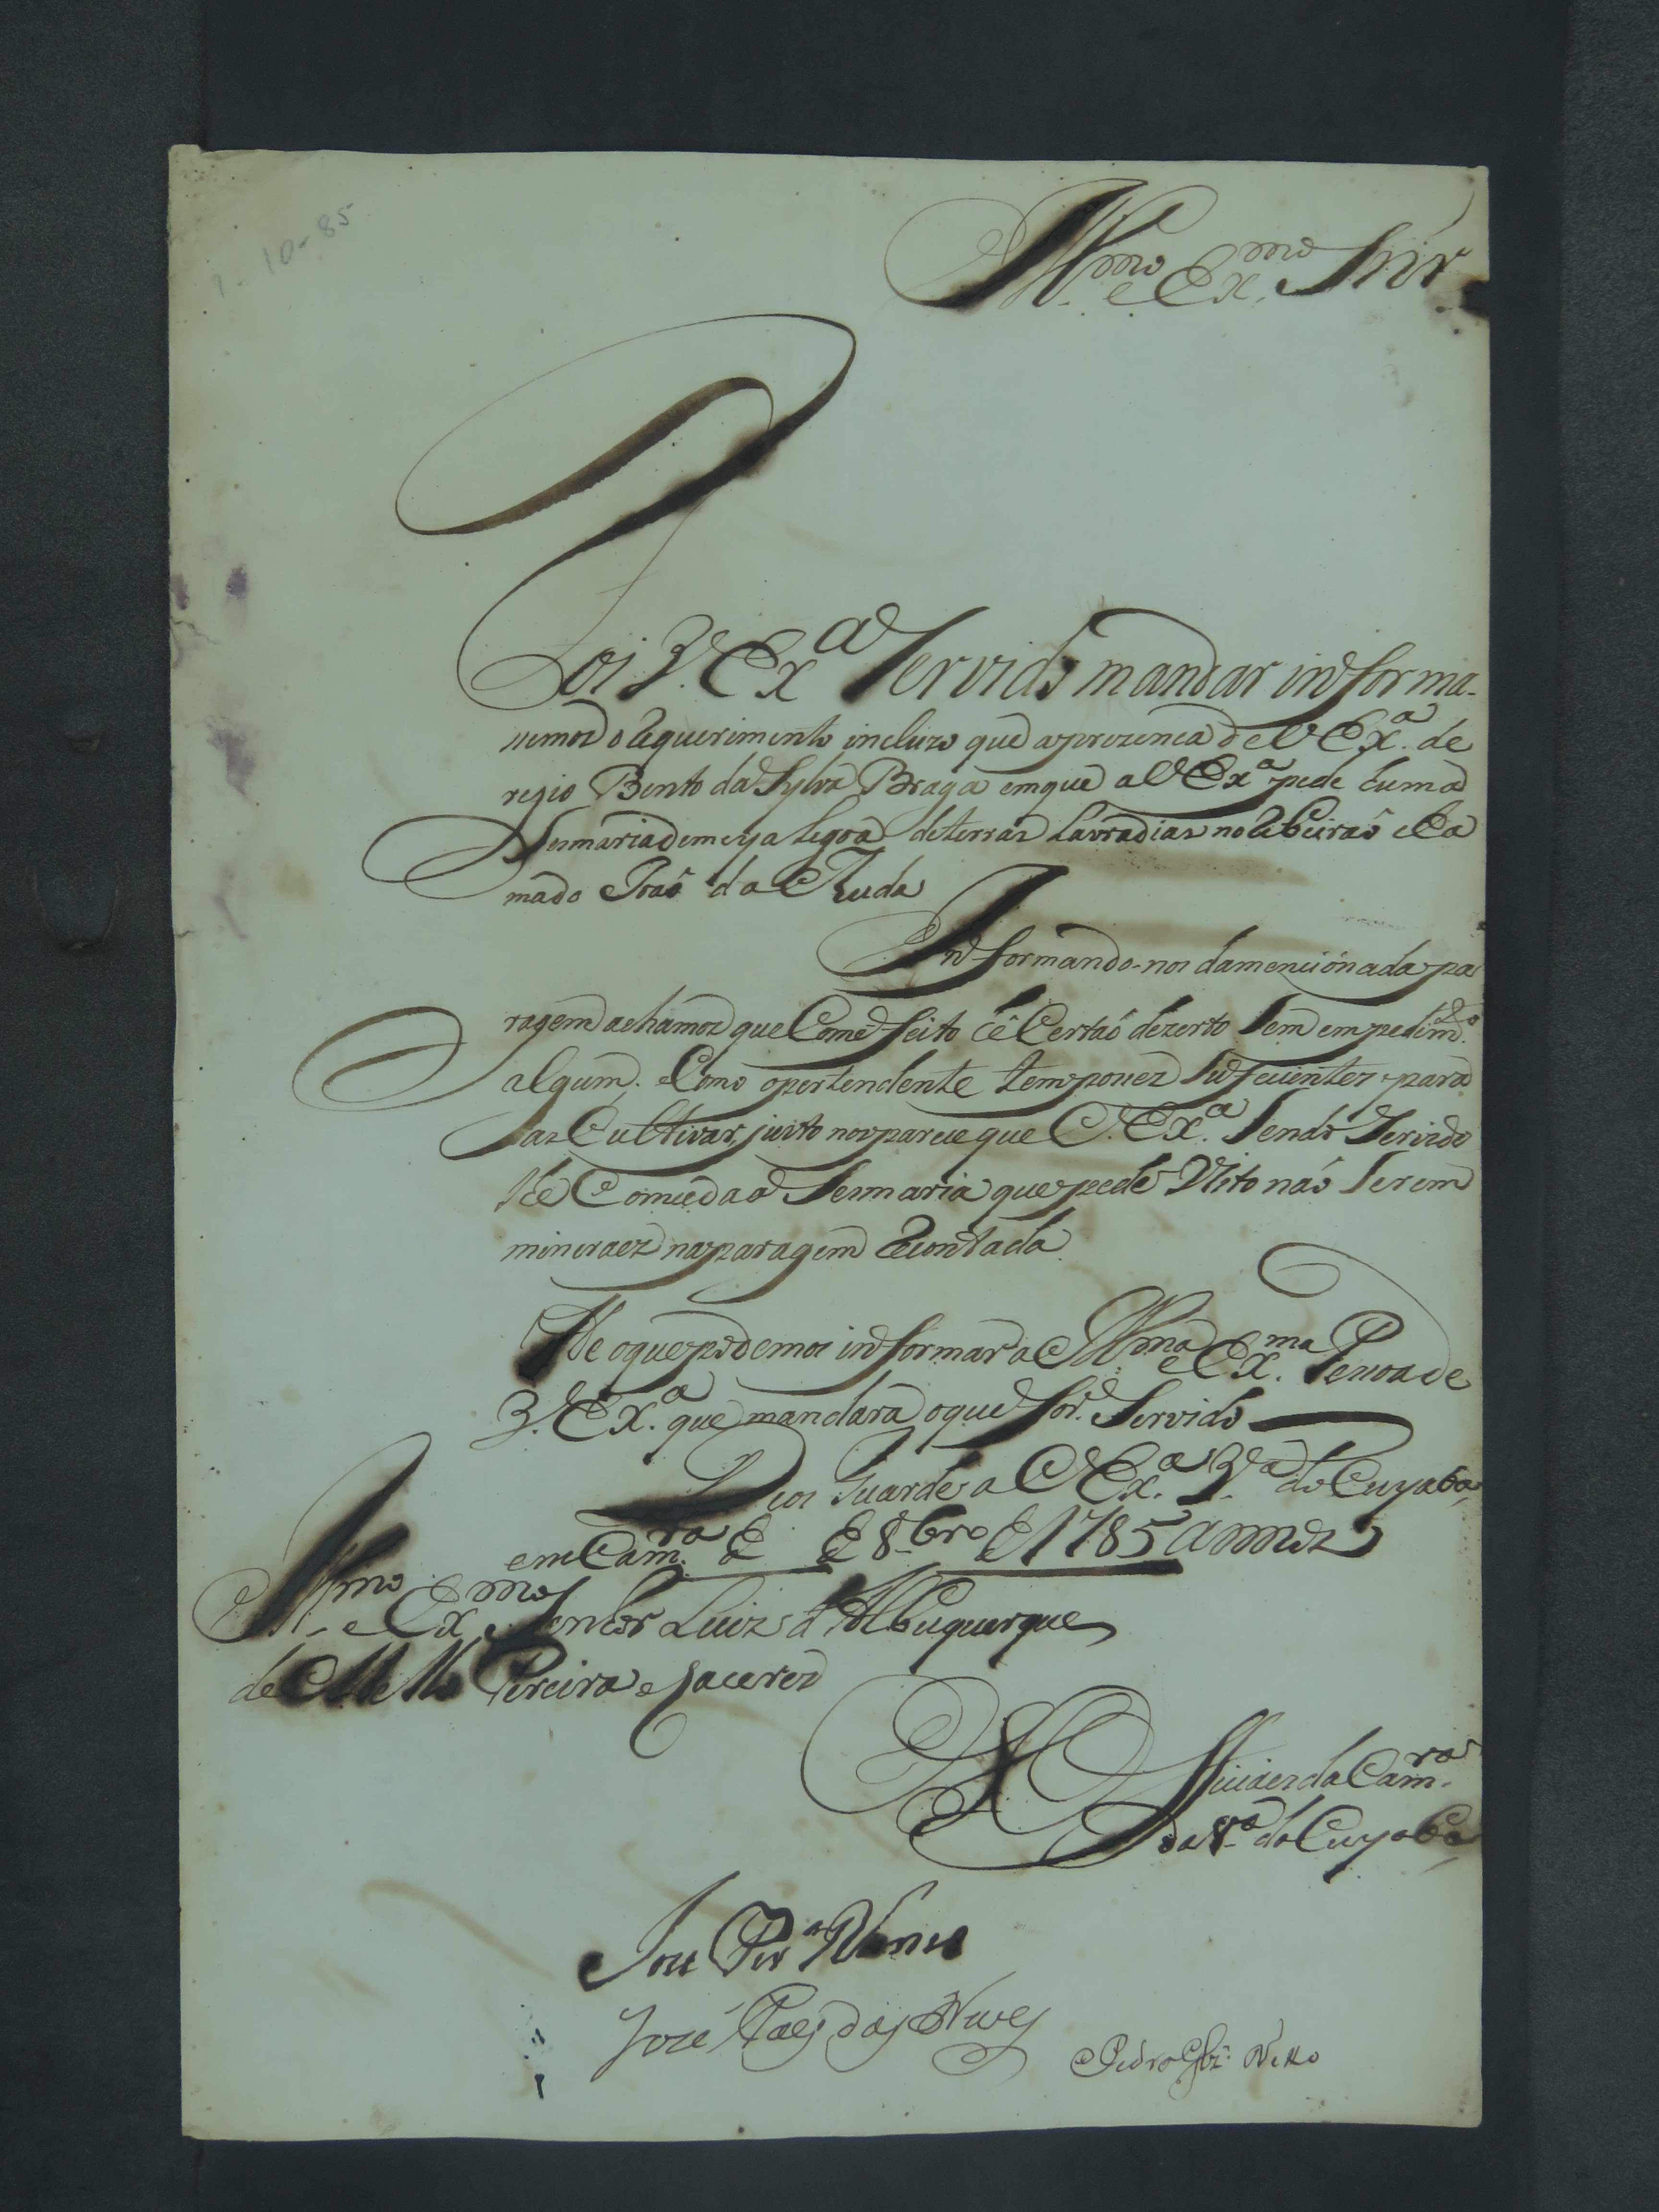 10-85
Ill.mo e Ex.mo Snr.
Foi V. Ex.a Servido mandar informa-
semos o Requerimento incluzo que aprezença de V Ex.a de
regio Bento da Sylva Braga em que a V Ex.a pede huma
Sesmaria de meya legoa de terras Lavradias no Ribeiraõ cha
mado Joaõ da
Informando-nos da mencionada pa
ragem achamos que Com efeito hê Certaõ dezerto Sem empedim.to
algum; e Como opertendente tem posses Suficientes para
as Cultivar, justo nos parece que V. Ex.a Sendo Servido
lhe Conceda a Sesmaria que pede Visto naõ Serem
mineraez na paragem Recontada.
He o que podemos informar a Ill.ma e Ex.ma Pessoa de
V. Ex.a que mandará o que for Servido
Deos Guarde a V Ex.a V.a do Cuyabá
em Cam.ra de de 8.bro de 1785 annos
Ill.mo e Ex.mo Senhor Luiz d'Albuquerque
de Mello Pereira e Caceres
Officiaes da Cam.ra
da V.a do Cuyabá
Joze Per.a Nunes
José Paes das Neves
Pedro Netto